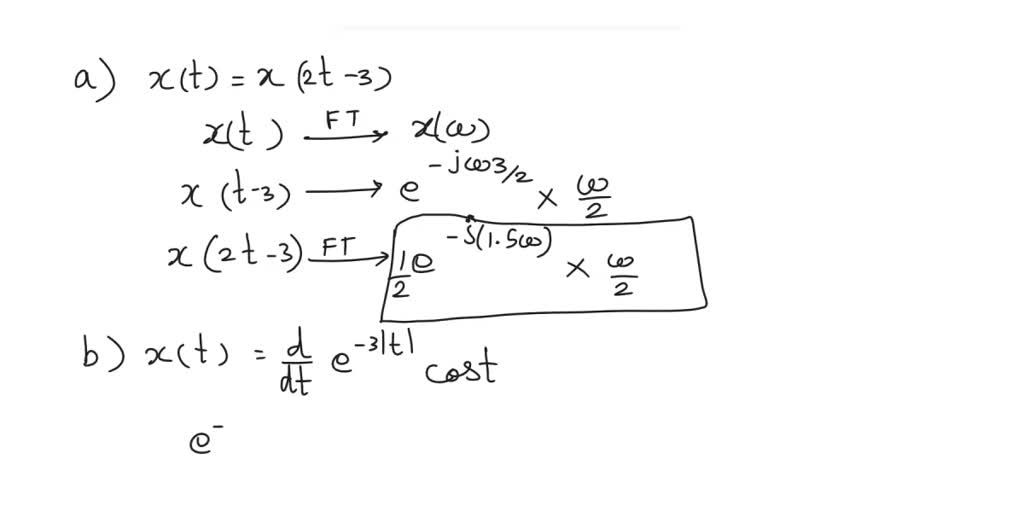 a) x(t) = x (2t -3)
x(t) FT → x(ω)
x (t-3) → e^{-jω3/2} × ω/2
x (2t -3) FT → 1/2 e^{-j(1.5ω)} × ω/2
b) x(t) = d/dt e^{-3|t|} cost
e^-